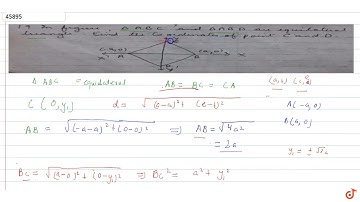 45895
19 In figure Δ ABC and Δ ABD are equilateral
triangle Find the coordinates of point C and D.
(-a,0) (a,0)
x' A B x
Δ ABC = equilateral AB = BC = CA (a,b) (c,d)
C(0,y₁) d = √(a-c)²+(b-d)² A(-a,0)
AB = √(-a-a)²+(0-0)² ⇒ AB = √4a² B(a,0)
= 2a
y₁ = ±√3a
BC = √(a-0)²+(0-y₁)² ⇒ BC² = a²+y₁²